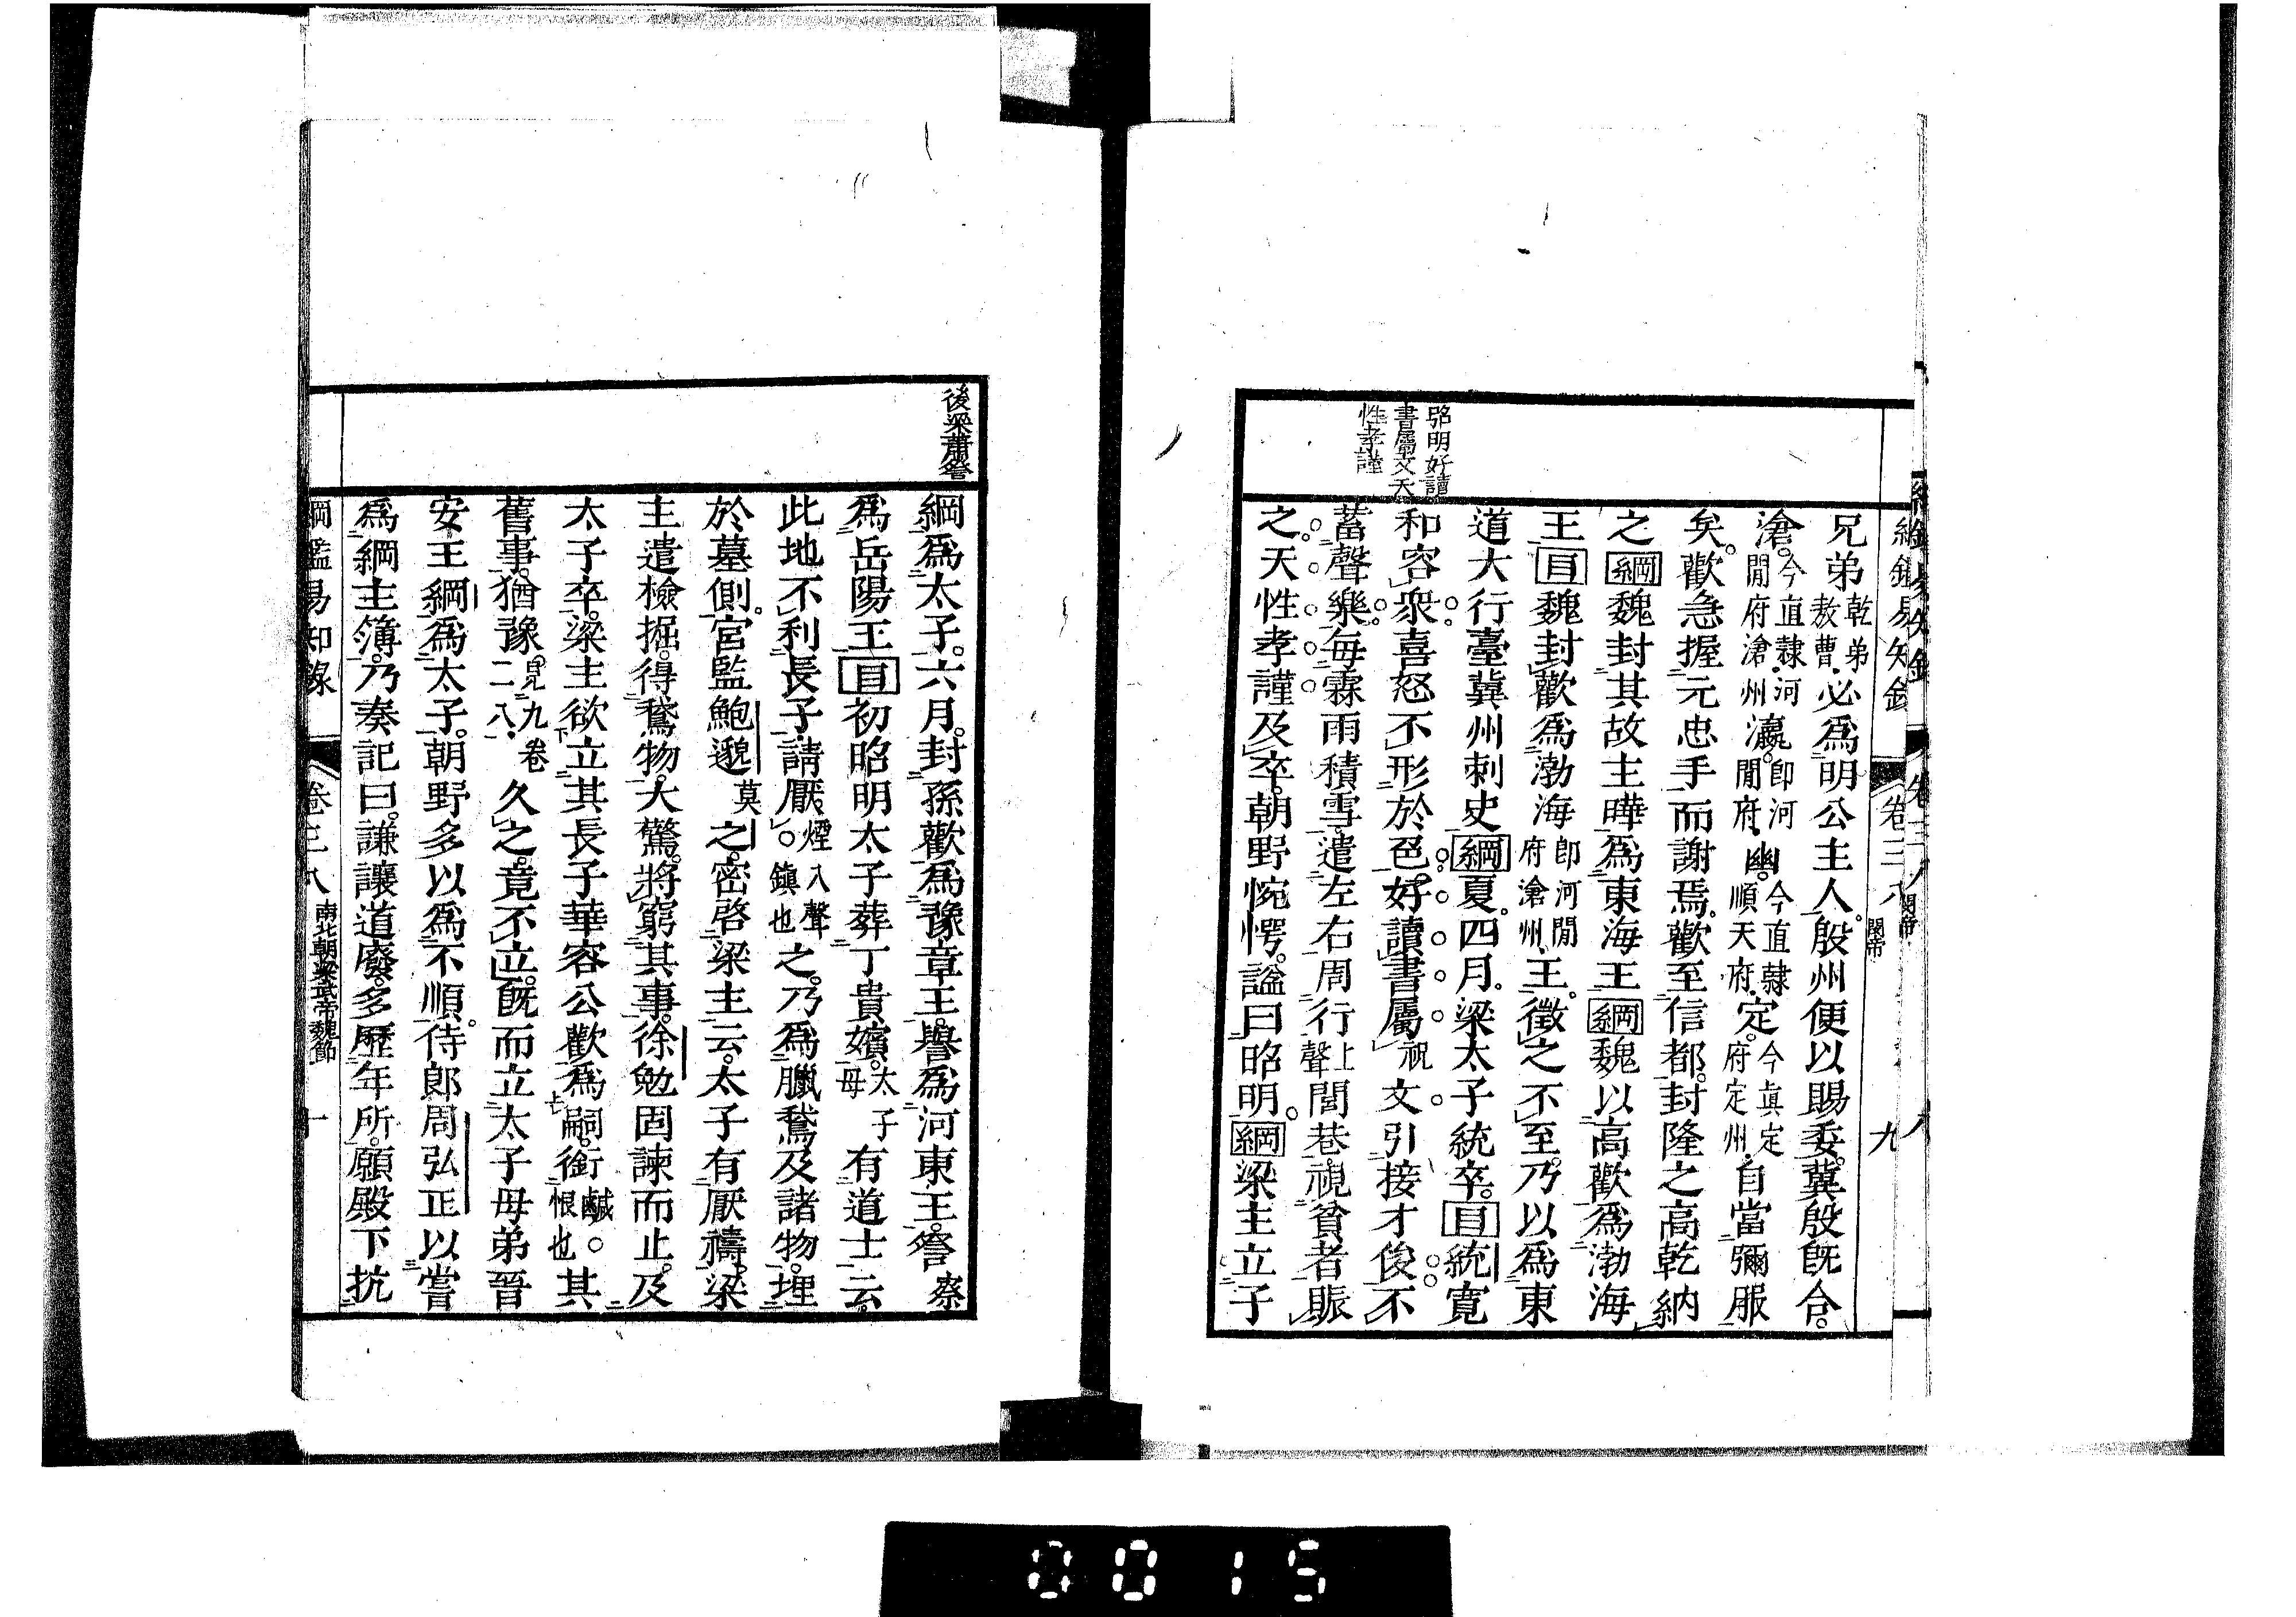 兄弟乾弟敖曹必爲明公主人殷州便以賜委冀殷旣合
滄今直隷河閒府滄州瀛卽河閒府幽今直隷順天府定今眞定府定州自當彌服
矣歡急握元忠手而謝焉歡至信都封隆之高乾納
之綱魏封其故主曄爲東海王綱魏以高歡爲渤海
王目魏封歡爲渤海卽河閒府滄州王徵之不至乃以爲東
道大行臺冀州刺史綱夏四月梁太子統卒目統寬
和容衆喜怒不形於色好讀書屬祝文引接才俊不
蓄聲樂每霖雨積雪遣左右周行上聲閭巷視貧者賑
之天性孝謹及卒朝野惋愕諡曰昭明綱梁主立子
昭明好讀
書屬文天
性孝謹
卷三八
九
後梁蕭詧
綱爲太子六月封孫歡爲豫章王譽爲河東王詧察
爲岳陽王目初昭明太子葬丁貴嬪太子母有道士云
此地不利長子請厭煙入聲鎮也之乃爲臘鵞及諸物埋
於墓側宮監鮑邈莫之密啓梁主云太子有厭禱梁
主遣檢掘得鵞物大驚將窮其事徐勉固諫而止及
太子卒梁主欲立其長子華容公歡爲嗣銜鹹恨也其
舊事猶豫見九卷二八久之竟不立旣而立太子母弟晉
安王綱爲太子朝野多以爲不順侍郎周弘正以嘗
爲綱主簿乃奏記曰謙讓道廢多歷年所願殿下抗
綱鑑易知錄 卷三八 南北朝梁武帝魏節 十